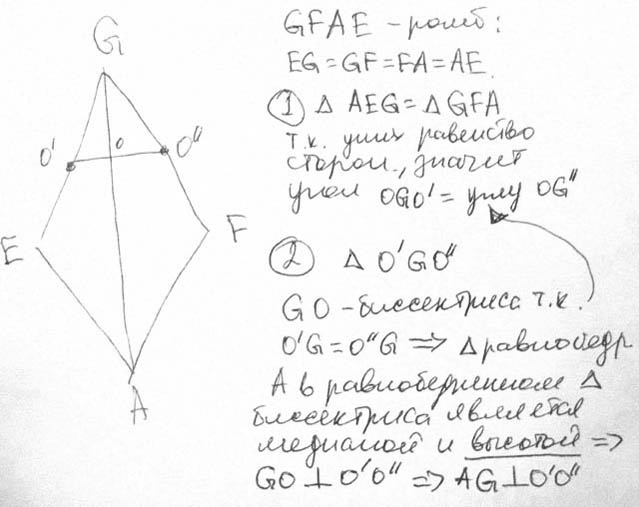 G
O'
o
O"
E
F
A
GFAE – ромб:
EG=GF=FA=AE.
① Δ AEG=ΔGFA
т.к. у них равенство
сторон, значит
угол OGO' = углу OG"
② Δ O'GO"
GO – биссектриса т.к.
O'G=O"G => Δ равнобедр
А в равнобедренном Δ
биссектриса является
медианой и высотой =>
GO ⊥ O'O" => AG⊥O'O"